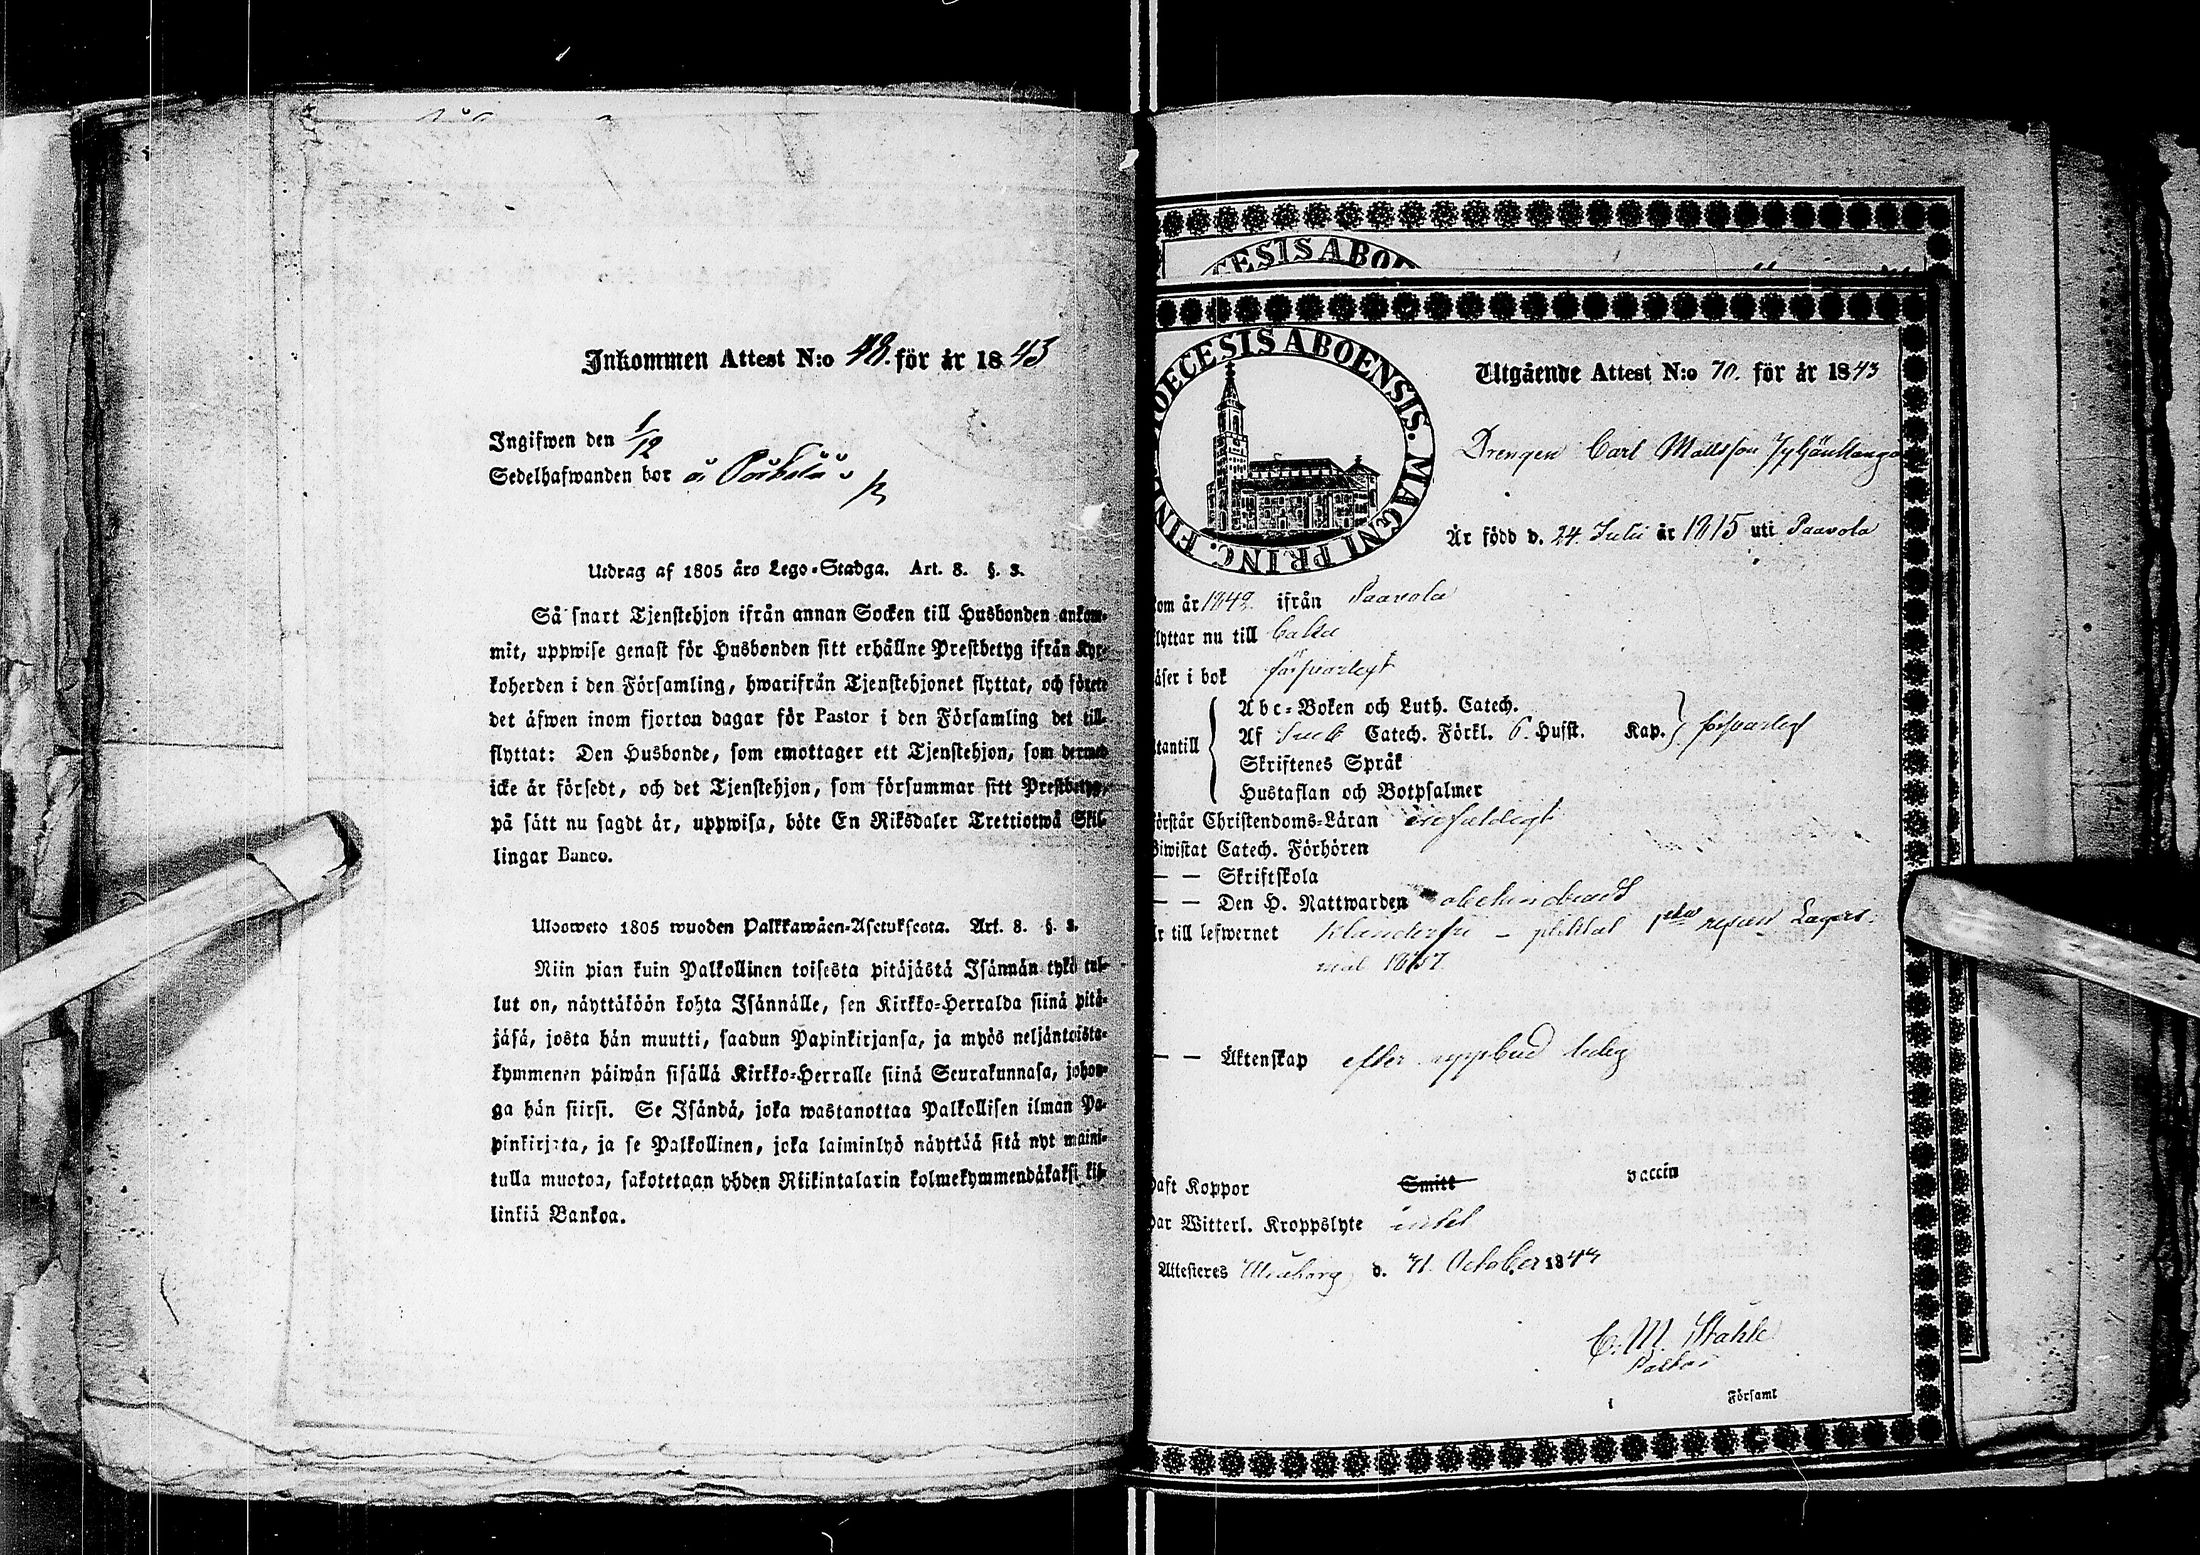 Inkommen Attest N:o 48. för år 1843
Ingifwen den 1/12
Sedelhafwanden bor å
Utdrag af 1805 års Lego-Stadga. Art. 8. §. 3.
Så snart Tjenstehjon ifrån annan Socken till Husbonden ankom-
mit, uppwise genast för Husbonden sitt erhållne Prestbetyg ifrån Kyr-
koherden i den Församling, hwarifrån Tjenstehjonet flyttat, och förete
det äfwen inom fjorton dagar för Pastor i den Församling det till-
flyttat: Den Husbonde, som emottager ett Tjenstehjon, som dermed
icke är försedt, och det Tjenstehjon, som försummar sitt Prestbetyg,
på sätt nu sagdt är, uppwisa, böte En Riksdaler Trettiotwå Skil-
lingar Banco.
Ulosweto 1805 wuoden Palkkawäen-Asetuksesta. Art. 8. §. 3.
Niin pian kuin Palkollinen toisesta pitäjästä Isännän tykö tul-
lut on, näyttäköön kohta Isännälle, sen Kirkko-Herralda siinä pitä-
jäsä, josta hän muutti, saadun Papinkirjansa, ja myös neljäntoista-
kymmenen päiwän sisällä Kirkko-Herralle siinä Seurakunnasa, johon-
ga hän siirsi. Se Isändä, joka wastanottaa Palkollisen ilman Pa-
pinkirjata, ja se Palkollinen, joka laiminlyö näyttää sitä nyt maini-
tulla muotoa, sakotetaan yhden Riikintalarin kolmekymmendäkaksi kil-
linkiä Bankoa.
ECESIS ABOE
DIOECESIS ABOENSIS. MAGNI PRINC. FIN
Utgående Attest N:o 70. för år 1843
Drengen Carl Mattsson
Är född d. 24. Julii år 1815 uti Paavola
om år 1842 ifrån Paavola
lyttar nu till
äser i bok försvarligt
tantill
Abc-Boken och Luth. Catech.
Af Catech. Förkl. 6. Husst. Kap. försvarligt
Skriftenes Språk
Hustaflan och Botpsalmer
örstår Christendoms-Läran enfaldigt
Biwistat Catech. Förhören
— — Skriftskola
— — Den H. Nattwarden obehindrad
r till lefwernet klanderfri – pliktat 1sta resan Lägers-
mål 1837
— — Äktenskap efter uppbud ledig
aft Koppor Smitt vaccin
ar Witterl. Kroppslyte intet
Attesteres Uleåborg d. 31. October 1843
C. M. Stahle
Pastor
Församl